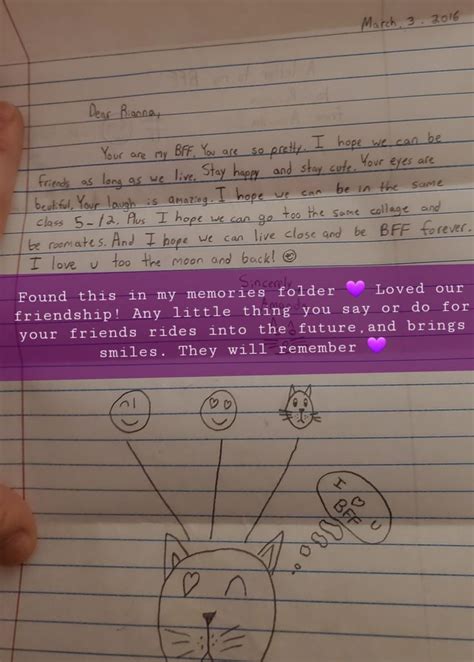 March, 3, 2016
Dear Rianna,
Your are my BFF. You are so pretty. I hope we can be
friends as long as we live. Stay happy and stay cute. Your eyes are
beatiful. Your laugh is amazing. I hope we can be in the same
class 5-12. Plus I hope we can go too the same collage and
be roomates. And I hope we can live close and be BFF forever.
I love u too the moon and back!
Sincerely,
Found this in my memories folder 💜 Loved our
friendship! Any little thing you say or do for
your friends rides into the future,and brings
smiles. They will remember 💜
I ♡ U
BFF